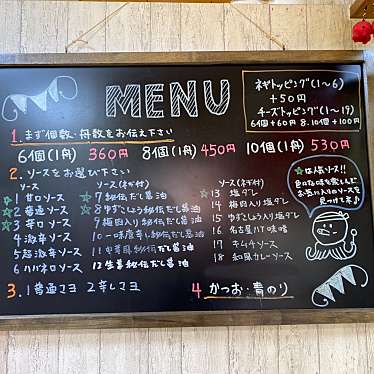 MENU
ネギトッピング(1〜6)
+50円
チーズトッピング(1〜19)
6個+60円 8.10個+100円
1. まず個数・舟数をお伝え下さい
6個(1舟) 360円 8個(1舟) 450円 10個(1舟) 530円
2. ソースをお選び下さい
ソース
☆1 甘口ソース
☆2 普通ソース
☆3 辛口ソース
4 激辛ソース
5 超激辛ソース
6 ハバネロソース
ソース(ネギ付)
☆7 秘伝だし醤油
☆8 ゆずこしょう秘伝だし醤油
9 梅肉入り秘伝だし醤油
10 一味唐辛い秘伝だし醤油
11 中華風秘伝だし醤油
12 生姜秘伝だし醤油
ソース(ネギ付)
☆13 塩ダレ
14 梅肉入り塩ダレ
15 ゆずこしょう入り塩ダレ
16 名古屋ハ丁味噌
17 キムチソース
18 和風カレーソース
お気に入りのソースを
見つけて下
3. 1 普通マヨ 2 辛しマヨ
4 かつお・青のり